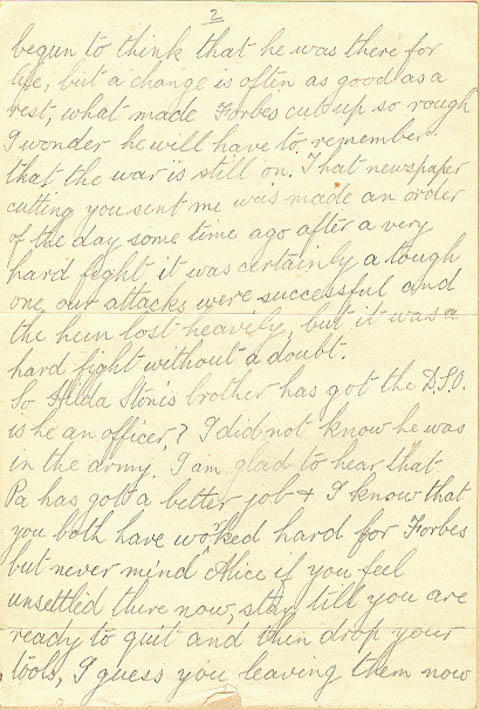 2
begun to think that he was there for
life, but a change is often as good as a
rest, what made Forbes cut up so rough
I wonder he will have to remember
that the war is still on. That newspaper
cutting you sent me was made an order
of the day some time ago after a very
hard fight it was certainly a tough
one, our attacks were successful and
the hun lost heavily, but it was a
hard fight without a doubt.
So Hilda Stone's brother has got the D.S.O.
is he an officer? I did not know he was
in the army. I am glad to hear that
Pa has got a better job & I know that
you both have worked hard for Forbes
but never mind Alice if you feel
unsettled there now, stay till you are
ready to quit and then drop your
tools, I guess you leaving them now